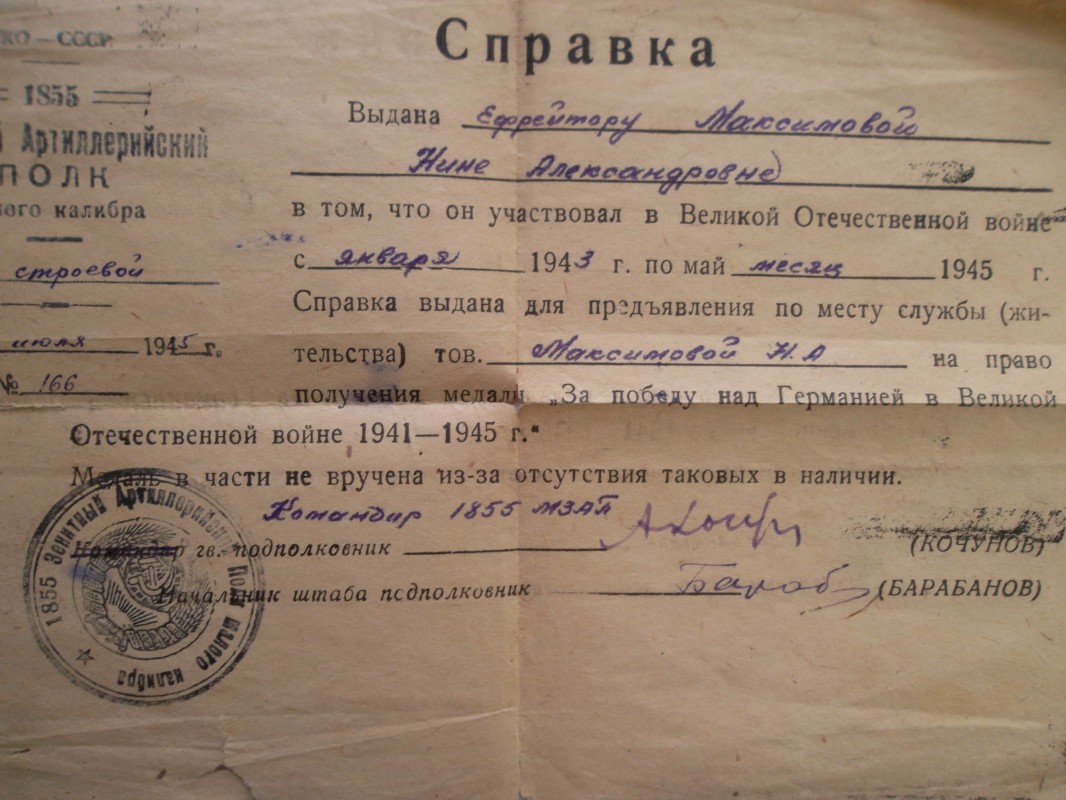 НКО – СССР
1855
Артиллерийский
ПОЛК
калибра
строевой
июля 1945 г.
№ 166
Справка
Выдана Ефрейтору Максимовой
Нине Александровне
в том, что он участвовал в Великой Отечественной войне
с января 1943 г. по май месяц 1945 г.
Справка выдана для предъявления по месту службы (жи-
тельства) тов. Максимовой Н.А на право
получения медали „За победу над Германией в Великой
Отечественной войне 1941—1945 г.“
Медаль в части не вручена из-за отсутствия таковых в наличии.
Командир 1855 МЗАП
Командир гв. подполковник (КОЧУНОВ)
Начальник штаба подполковник Бараб (БАРАБАНОВ)
1855 Зенитный Артиллерийский Полк малого калибра